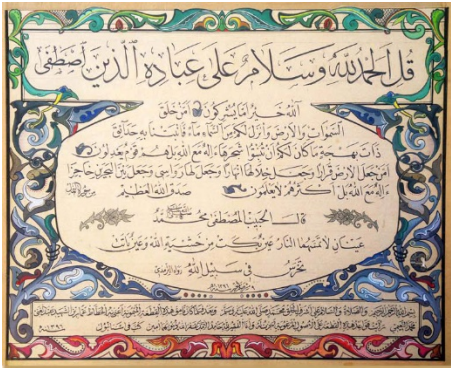 قل الحمد لله وسلام على عباده الذين اصطفى
آلله خير أما يشركون أمن خلق
السموات والأرض وأنزل لكم من السماء ماء فأنبتنا به حدائق
ذات بهجة ما كان لكم أن تنبتوا شجرها أإله مع الله بل هم قوم يعدلون
أمن جعل الأرض قرارا وجعل خلالها أنهارا وجعل لها رواسي وجعل بين البحرين حاجزا
أإله مع الله بل أكثرهم لا يعلمون صدق الله العظيم
قال الحبيب المصطفى محمد
عينان لا تمسهما النار عين بكت من خشية الله وعين باتت
تحرس في سبيل الله رواه الترمذي
بسم الله الرحمن الرحيم والصلاة والسلام على